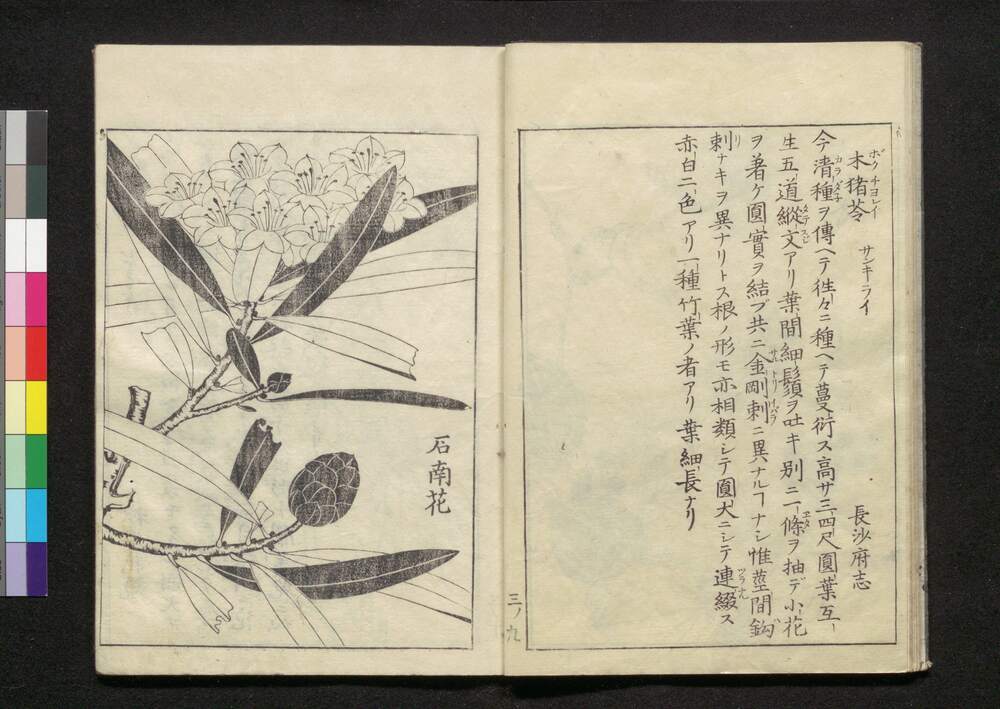 木猪苓 サンキライ 長沙府志
ボクチヨレイ
今清種ヲ傳ヘテ徃々ニ種ヘテ蔓衍ス高サ三四尺圓葉互ニ
カラダチ
生五道縱文アリ葉間細鬚ヲ吐キ別ニ一條ヲ抽デ小花
タテスヂ
ヱダ
ヲ着ケ圓實ヲ結ブ共ニ金剛刺ニ異ナルヿナシ惟莖間鈎
サルトリイバラ
刺ナキヲ異ナリトス根ノ形モ亦相類シテ圓大ニシテ連綴ス
リ
ツラナル
赤白二色アリ一種竹葉ノ者アリ葉細長ナリ
三ノ九
石南花